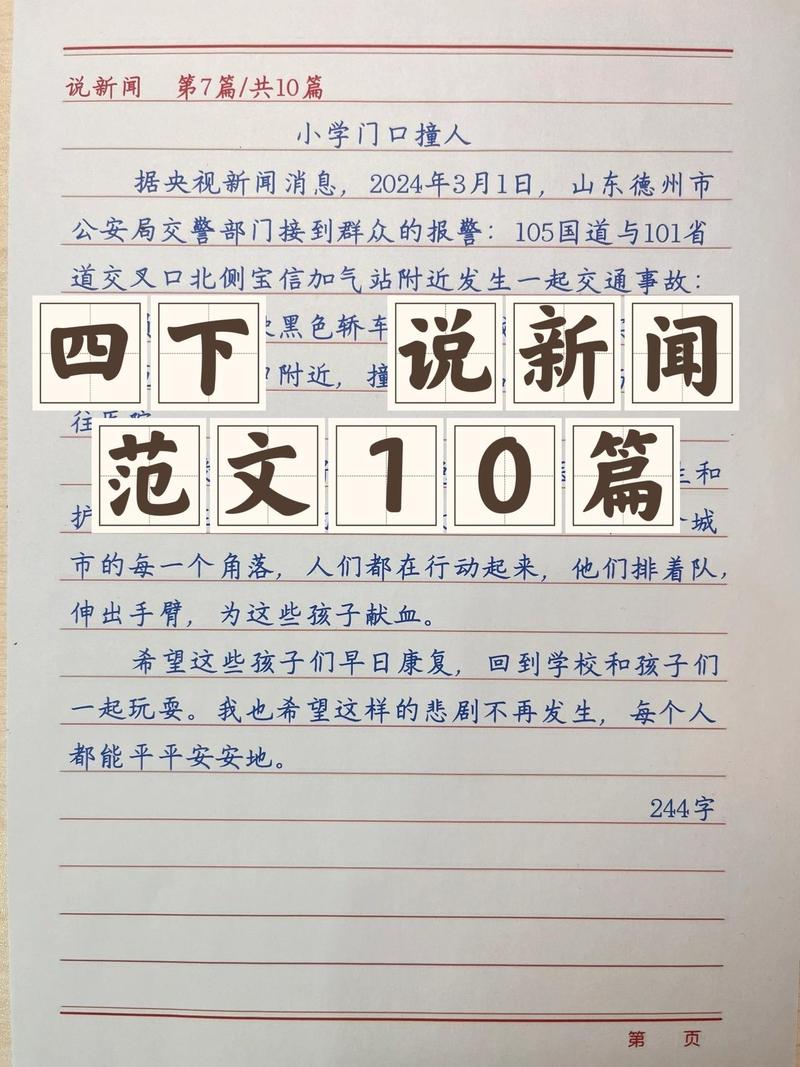 说新闻 第7篇/共10篇
小学门口撞人
据央视新闻消息，2024年3月1日，山东德州市
公安局交警部门接到群众的报警：105国道与101省
道交叉口北侧宝信加气站附近发生一起交通事故：
黑色轿车
四下 说新闻
附近，撞
往
范文10篇
生和
护 城
市的每一个角落，人们都在行动起来，他们排着队，
伸出手臂，为这些孩子献血。
希望这些孩子们早日康复，回到学校和孩子们
一起玩耍。我也希望这样的悲剧不再发生，每个人
都能平平安安地。
244字
第 页